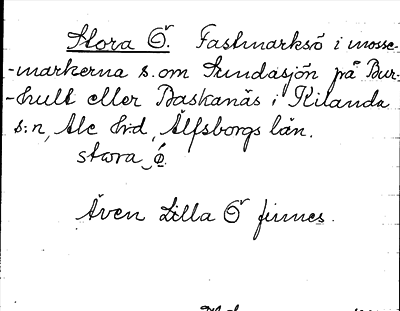 Stora Ö. Fastmarksö i mosse-
-markerna s.om Sundasjön på Bur-
-hult eller Baskanäs i Kilanda
s:n, Ale h:d, Älfsborgs län.
stora ö̀.
Även Lilla Ö finnes.